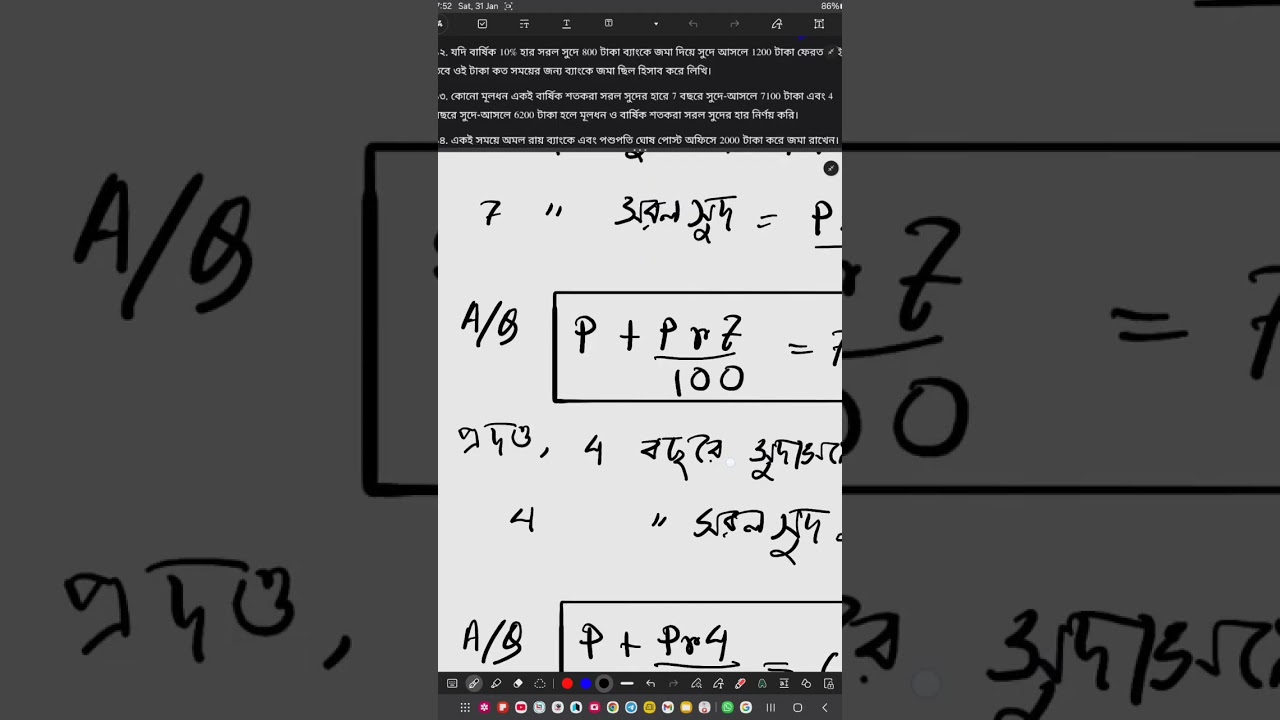 7:52 Sat, 31 Jan 86%
২. যদি বার্ষিক 10% হার সরল সুদে 800 টাকা ব্যাংকে জমা দিয়ে সুদে আসলে 1200 টাকা ফেরত
তবে ওই টাকা কত সময়ের জন্য ব্যাংকে জমা ছিল হিসাব করে লিখি।
৩. কোনো মূলধন একই বার্ষিক শতকরা সরল সুদের হারে 7 বছরে সুদে-আসলে 7100 টাকা এবং 4
বছরে সুদে-আসলে 6200 টাকা হলে মূলধন ও বার্ষিক শতকরা সরল সুদের হার নির্ণয় করি।
৪. একই সময়ে অমল রায় ব্যাংকে এবং পশুপতি ঘোষ পোস্ট অফিসে 2000 টাকা করে জমা রাখেন।
7 " সরল সুদ = P
A/Q P + Pr7/100 = 7
প্রদত্ত, 4 বছরে সুদাসলে
4 " সরল সুদ
A/Q P + Pr4 =